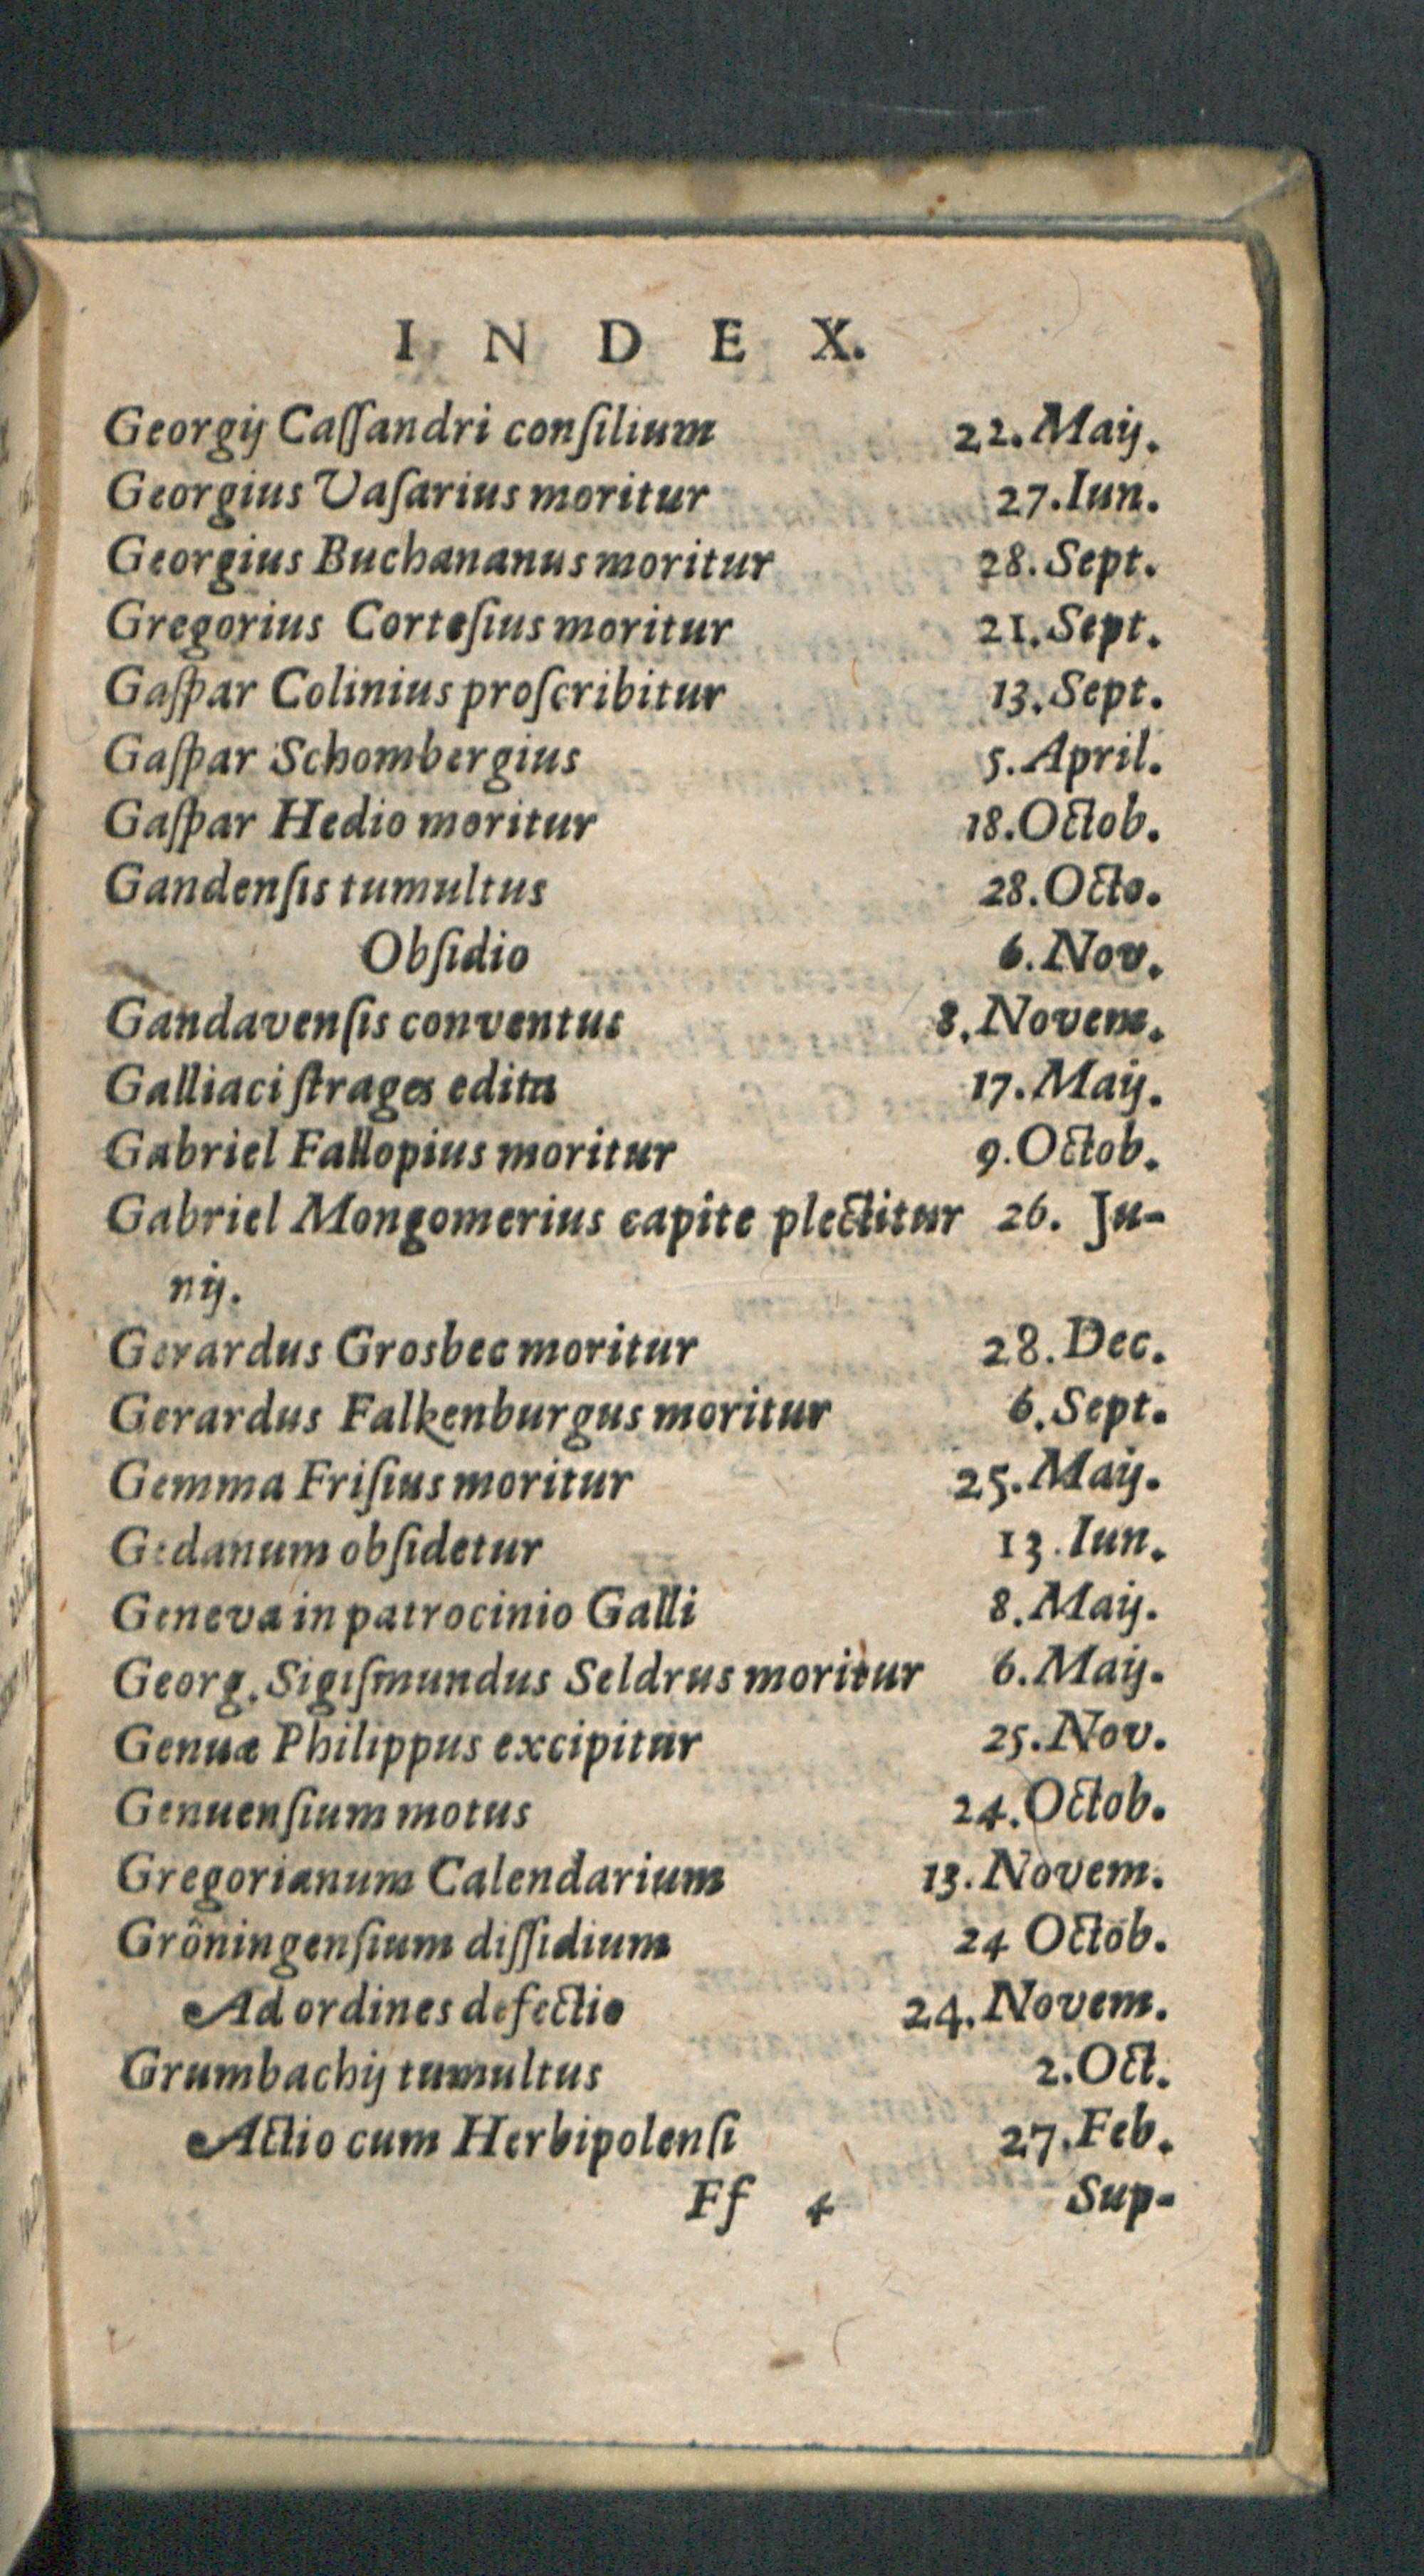 INDEX.
Georgij Caſſandri conſilium 22. Maij.
Georgius Vaſarius moritur 27. Iun.
Georgius Buchananus moritur 28. Sept.
Gregorius Corteſius moritur 21. Sept.
Gaſpar Colinius proſcribitur 13. Sept.
Gaſpar Schombergius 5. April.
Gaſpar Hedio moritur 18. Octob.
Gandenſis tumultus 28. Octo.
Obſidio 6. Nov.
Gandavenſis conventus 8. Novem.
Galliaci ſtrages edita 17. Maij.
Gabriel Fallopius moritur 9. Octob.
Gabriel Mongomerius capite plectitur 26. Ju-
nij.
Gerardus Grosbec moritur 28. Dec.
Gerardus Falkenburgus moritur 6. Sept.
Gemma Friſius moritur 25. Maij.
Gedanum obſidetur 13. Iun.
Geneva in patrocinio Galli 8. Maij.
Georg. Sigiſmundus Seldrus moritur 6. Maij.
Genuæ Philippus excipitur 25. Nov.
Genuenſium motus 24. Octob.
Gregorianum Calendarium 13. Novem.
Gröningenſium diſſidium 24 Octob.
Ad ordines defectio 24. Novem.
Grumbachij tumultus 2. Oct.
Actio cum Herbipolenſi 27. Feb.
Ff 4 Sup-